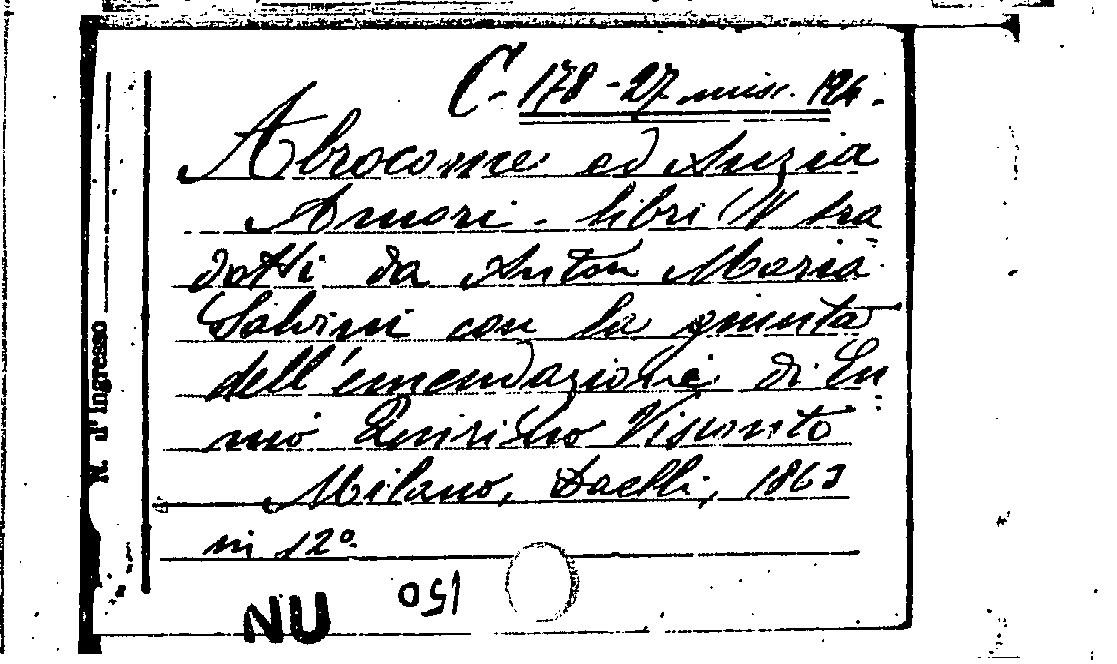 C. 178-27 misc. 124.
Abrocome ed Anzia
Amori - libri IV tra
dotti da Anton Maria
Salvini con la giunta
dell'emendazioni di En
nio Quirino Visconto
Milano, Daelli, 1863
in 12º
N. d'ingresso
NU
150